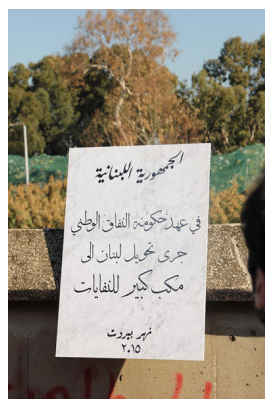 الجمهورية اللبنانية
في عهد حكومة النفاق الوطني
جرى تحويل لبنان الى
مكب كبير للنفايات
نهر بيروت
٢٠١٥